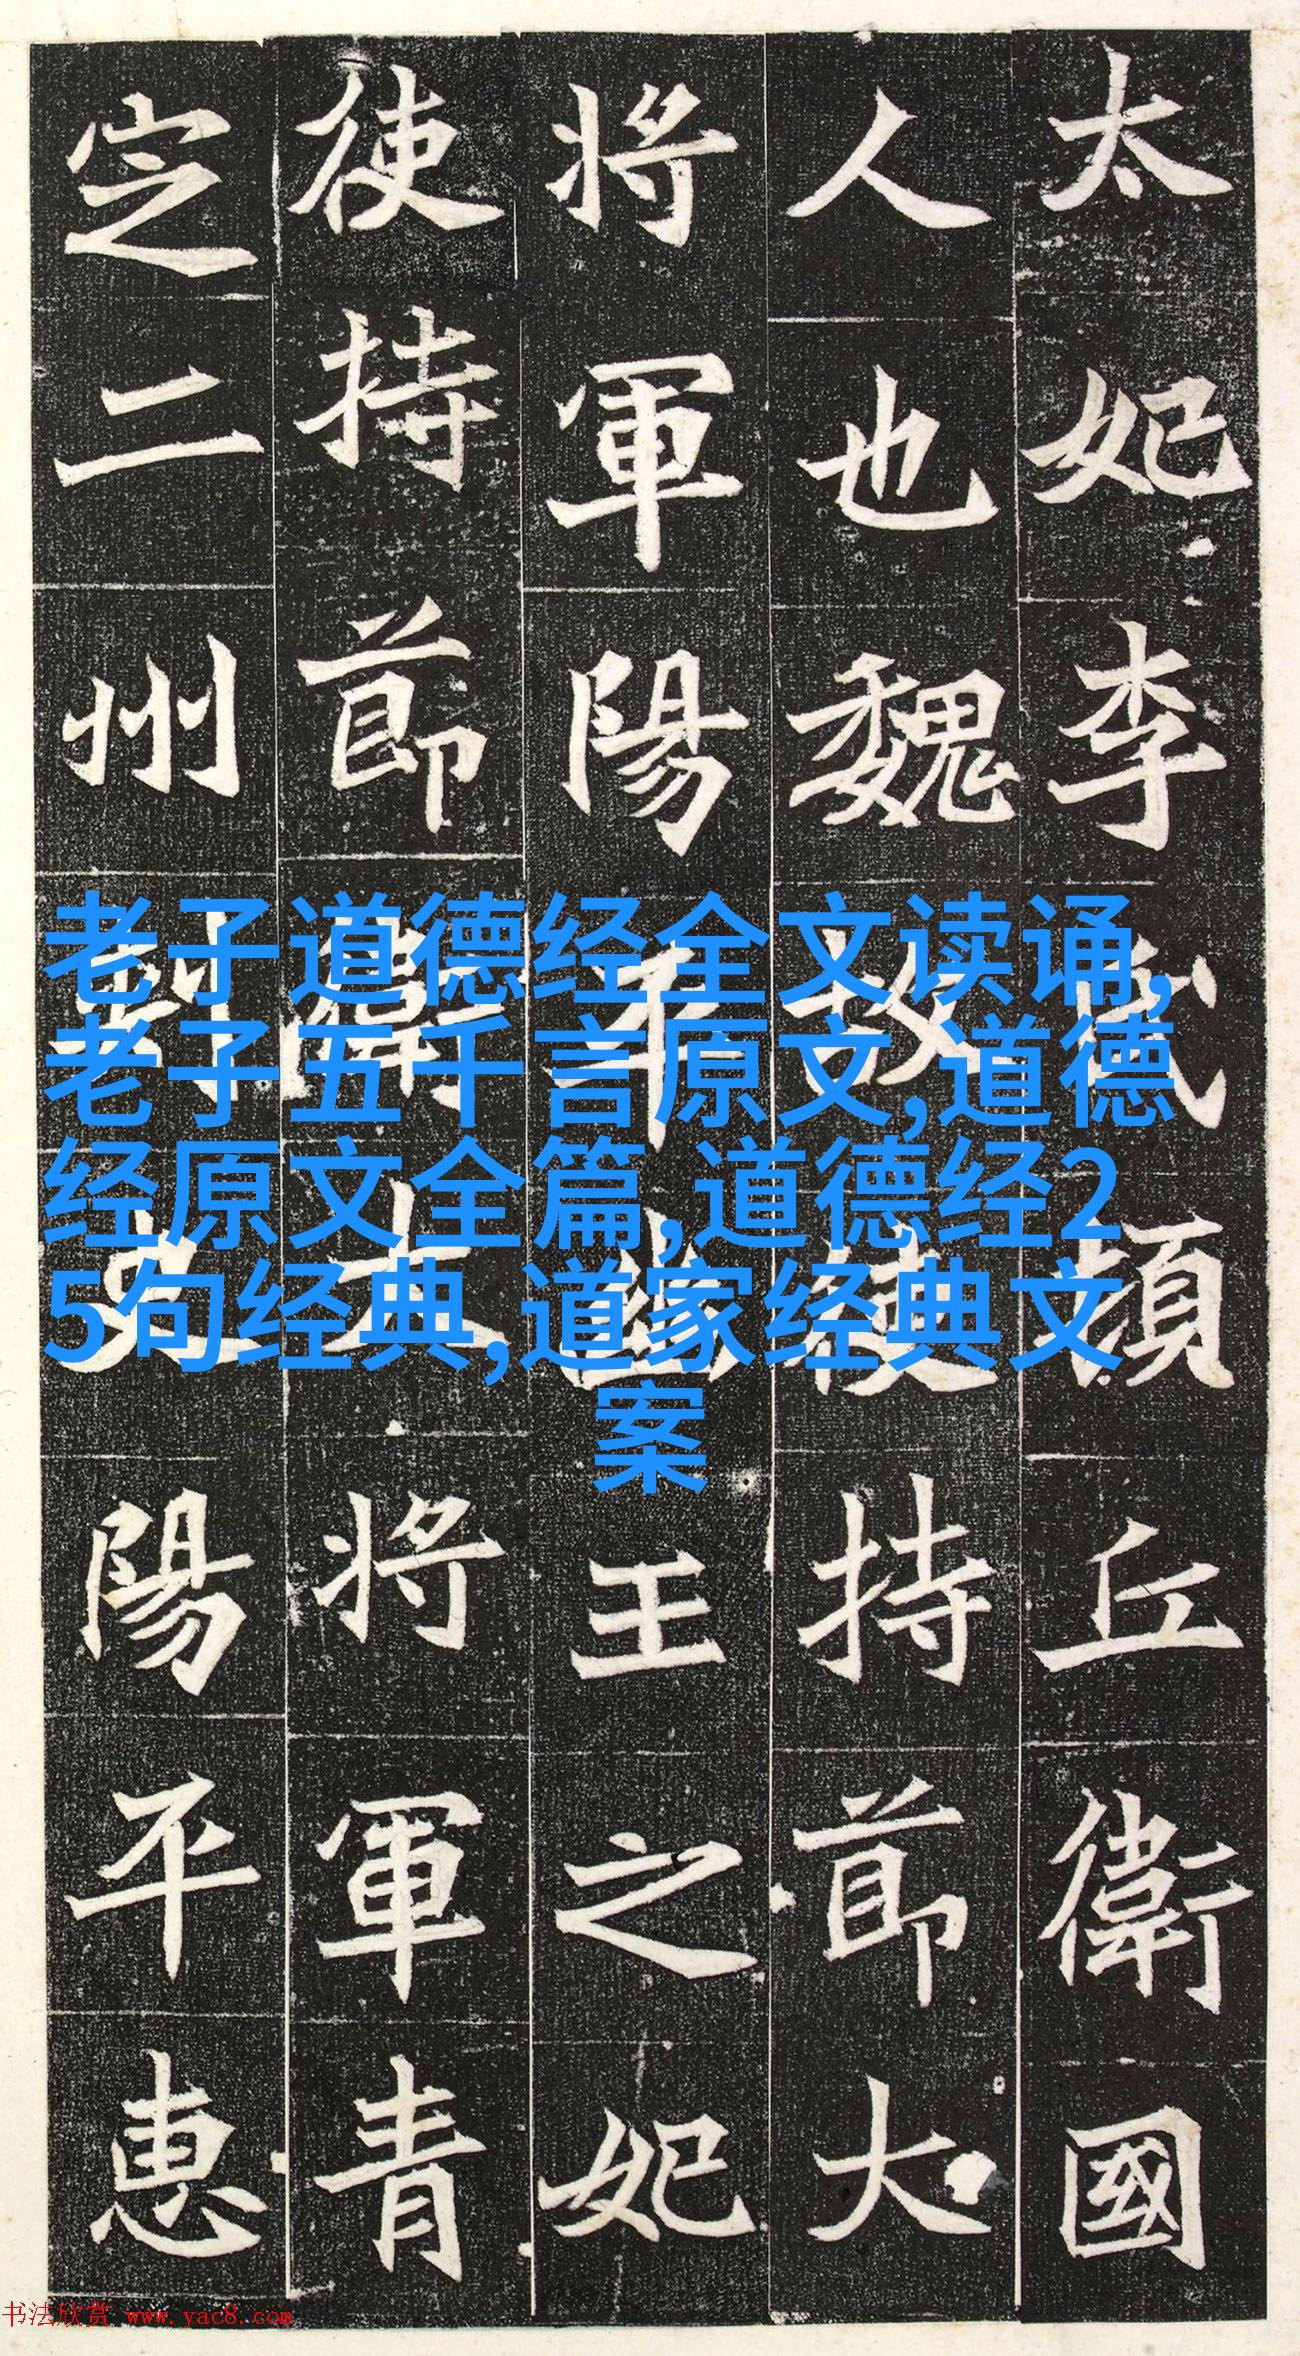 太妃李氏頓丘衛國
人也魏故使持節大
將軍陽平幽王之妃
使持節衛大將軍青
定二州刺史陽平惠
老子道德经全文读诵,
老子五千言原文,道德
经原文全篇,道德经2
5句经典,道家经典文
案
书法欣赏 www.yac8.com